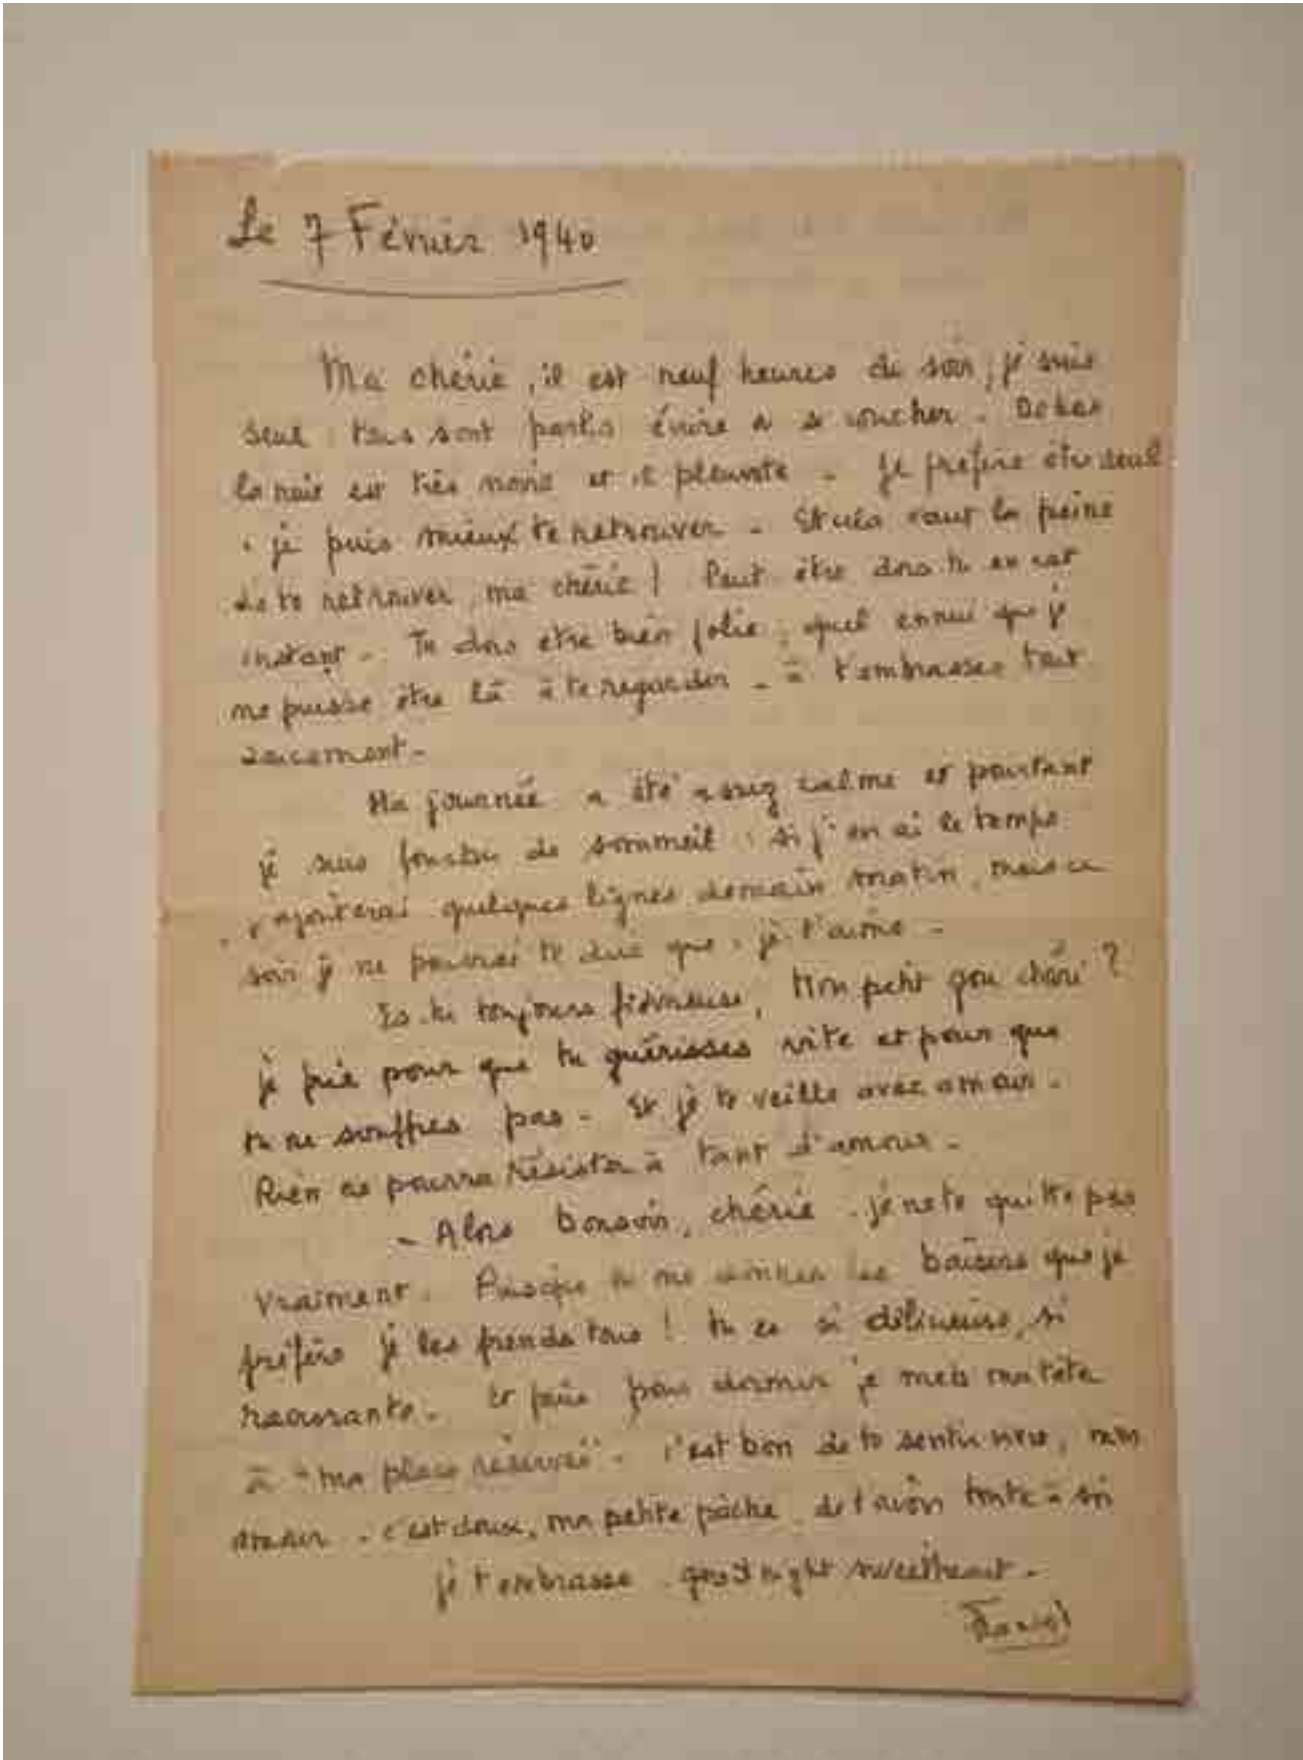 Le 7 Février 1940
Ma chérie, il est neuf heures du soir, je suis
seul : tous sont partis écrire ou se coucher. Dehors
la nuit est très noire et il pleuvote - Je préfère être seul
: je puis mieux te retrouver - Et cela vaut la peine
de te retrouver, ma chérie ! Peut être dors tu en cet
instant - Tu dois etre bien jolie, quel ennui que je
ne puisse être là à te regarder - à t'embrasser tout
doucement -
Ma journée a été assez calme et pourtant
je suis de sommeil : si j'en ai le temps
j'ajouterai quelques lignes demain matin, mais ce
soir je ne pourrai te dire que : je t'aime -
Es-tu toujours fiévreuse, Mon petit gou chéri ?
je prie pour que tu guérisses vite et pour que
tu ne souffres pas - Et je te veille avec amour -
Rien ne pourra résister à tant d'amour -
- Alors bonsoir, chérie - je ne te quitte pas
vraiment. Puisque tu me donnes les baisers que je
préfère je les prends tous ! tu es si délicieuse, si
. Et puis pour dormir je mets ma tête
à "ma place réservée" - c'est bon de te sentir, mon
- c'est doux, ma petite pêche, de t'avoir toute à soi
je t'embrasse - good night sweetheart -